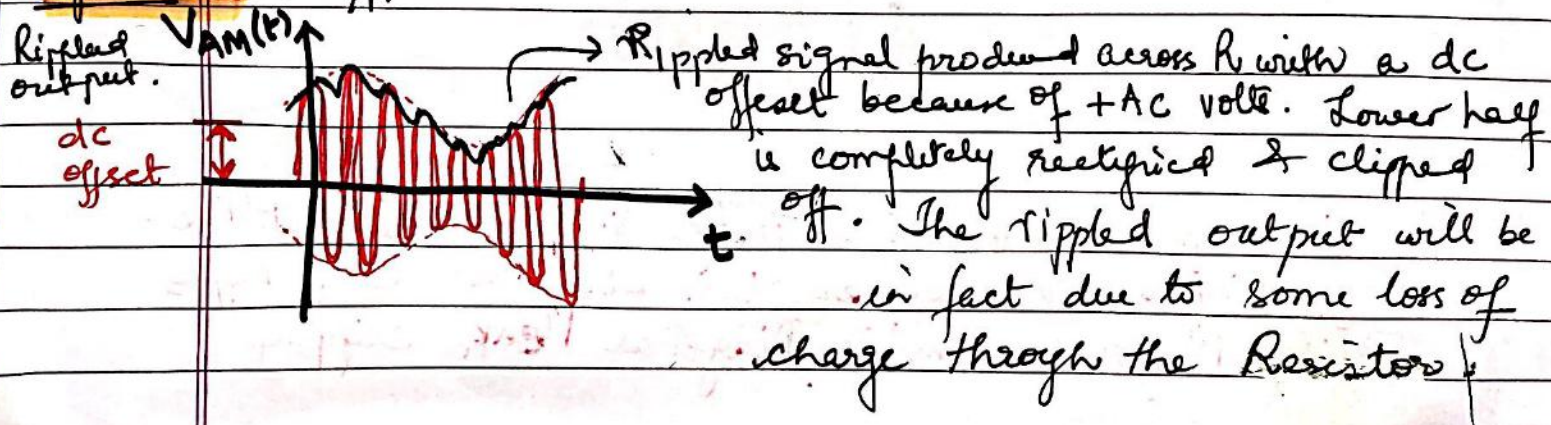 Rippled
output.
V_AM(t)
dc
offset
t.
→ Rippled signal produced across R with a dc
offset because of +Ac volts. Lower half
is completely rectified & clipped
off. The rippled output will be
in fact due to some loss of
charge through the Resistor.